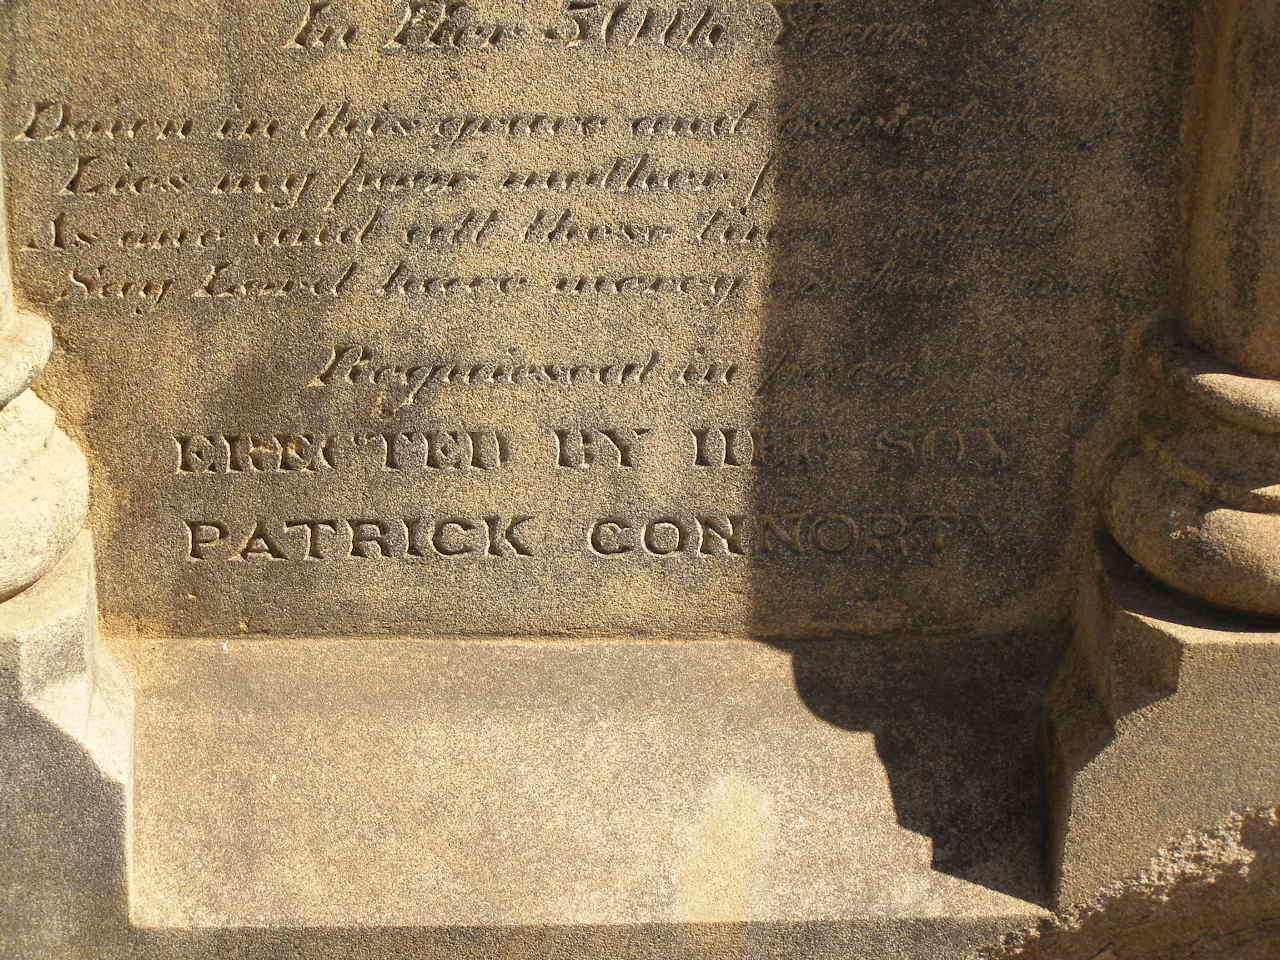 In Her 50th Year
Down in this grave and
Lies my poor mother
As one and all these lines
Say Lord have mercy on her
Requiescat in pace
ERECTED BY HER SON
PATRICK CONNORTY